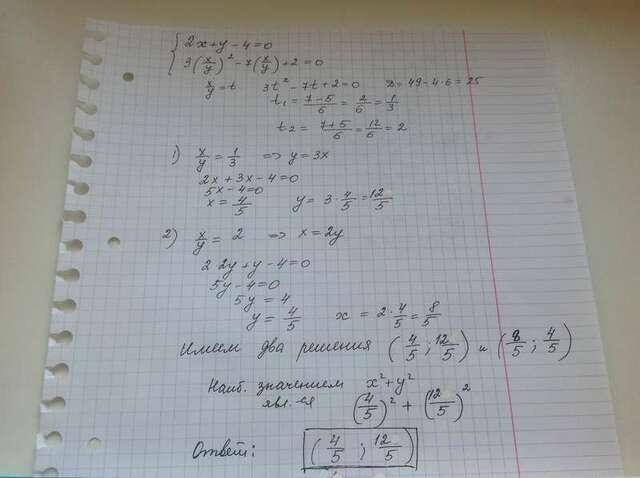 { 2x+y-4=0
3(x/y)² -7(x/y)+2=0
x/y=t 3t²-7t+2=0 D=49-4·6=25
t₁ = (7-5)/6 = 2/6 = 1/3
t₂ = (7+5)/6 = 12/6 = 2
1) x/y = 1/3 => y=3x
2x+3x-4=0
5x-4=0
x = 4/5 y= 3·4/5 = 12/5
2) x/y = 2 => x=2y
2·2y+y-4=0
5y-4=0
5y = 4
y = 4/5 x = 2·4/5 = 8/5
Имеем два решения (4/5 ; 12/5) и (8/5 ; 4/5)
Наиб. значением x²+y²
явл-ся (4/5)² + (12/5)²
Ответ: (4/5 ; 12/5)